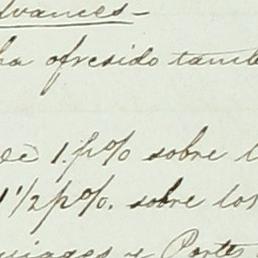 Advances -
ha ofresido tamb
de 1. p% sobre l
1 1/2 p%. sobre los
y Porte